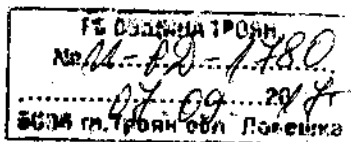 ГБ ОБЩИНА ТРОЯН
№ И-РД-1780
07.09 2017г
5600 гр. Троян обл. Ловешка